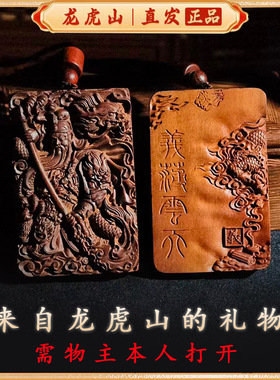 龙虎山 | 直发 正品
義薄雲天
来自龙虎山的礼物
需物主本人打开